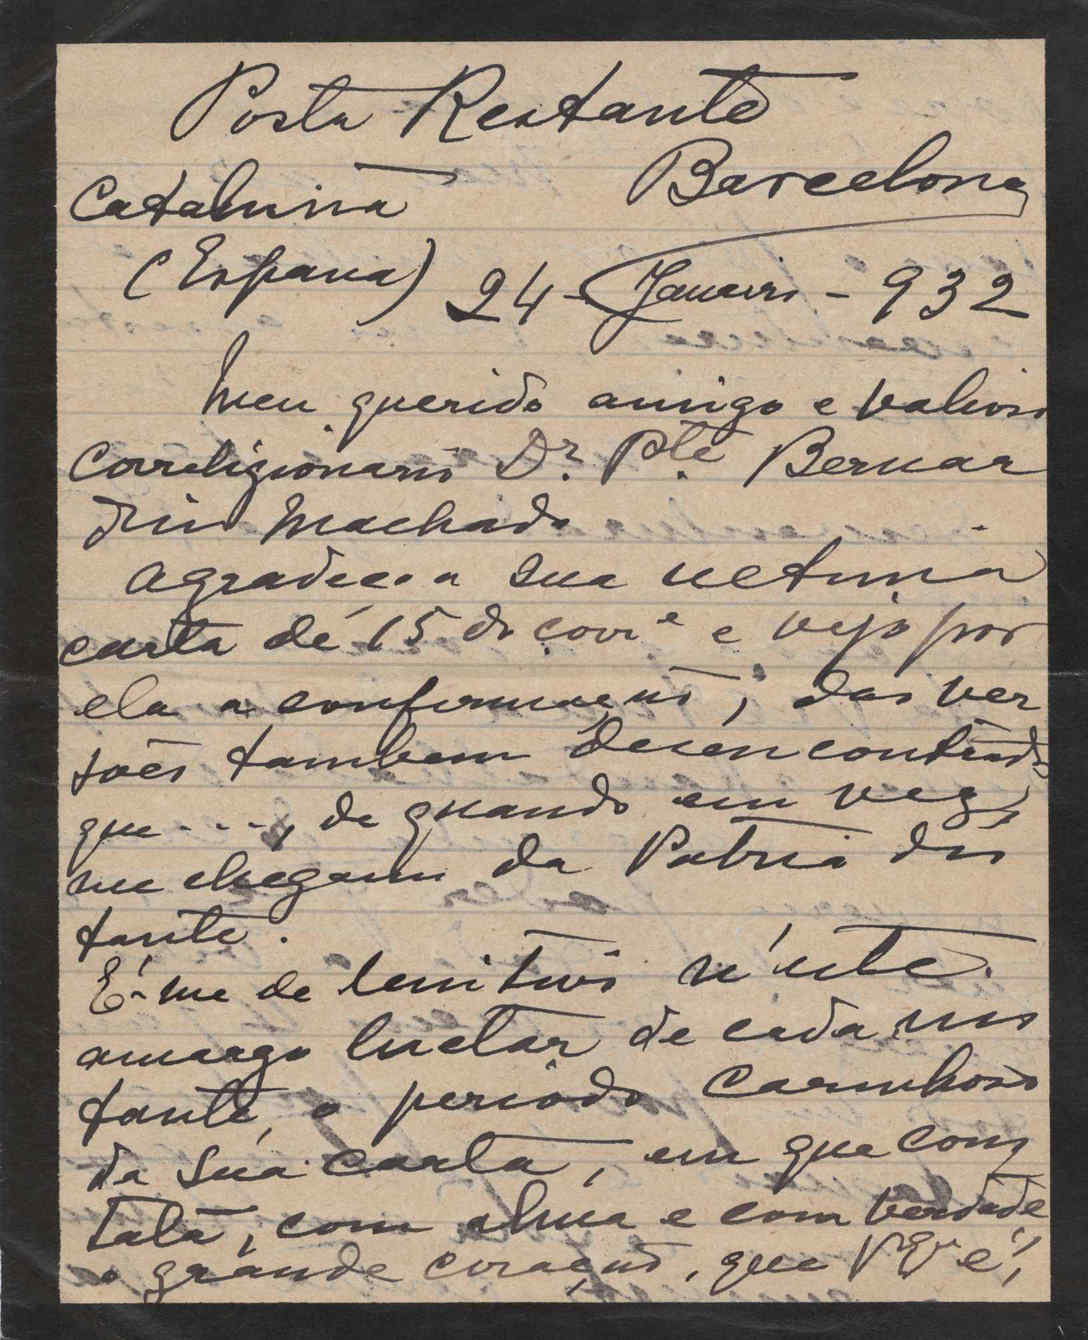 Posta Restante
Barcelona
Cataluña
(España) 24 - Janeiro - 932
Meu querido amigo e valioso
correligionario Dr. Pte Bernar
dino Machado
Agradeço a sua ultima
carta dé 15 do corre e vejo por
ela a confirmação, das ver
sões tambem desencontradas
que ..., de quando em vez,
me chegam da Patria dis
tante.
É-me de lenitivo n'este
amargo luctar de cada ins
tante, o periodo carinhoso
da sua carta, em que cons
tata, com alma e com verdade,
o grande coração, que V. é,